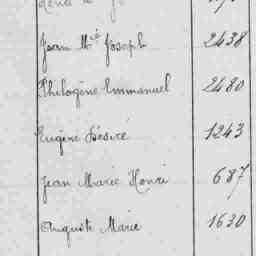 Jean Mie Joseph 2438
Philogène Emmanuel 2480
Eugène Désiré 1243
Jean Marie Henri 687
Auguste Marie 1630